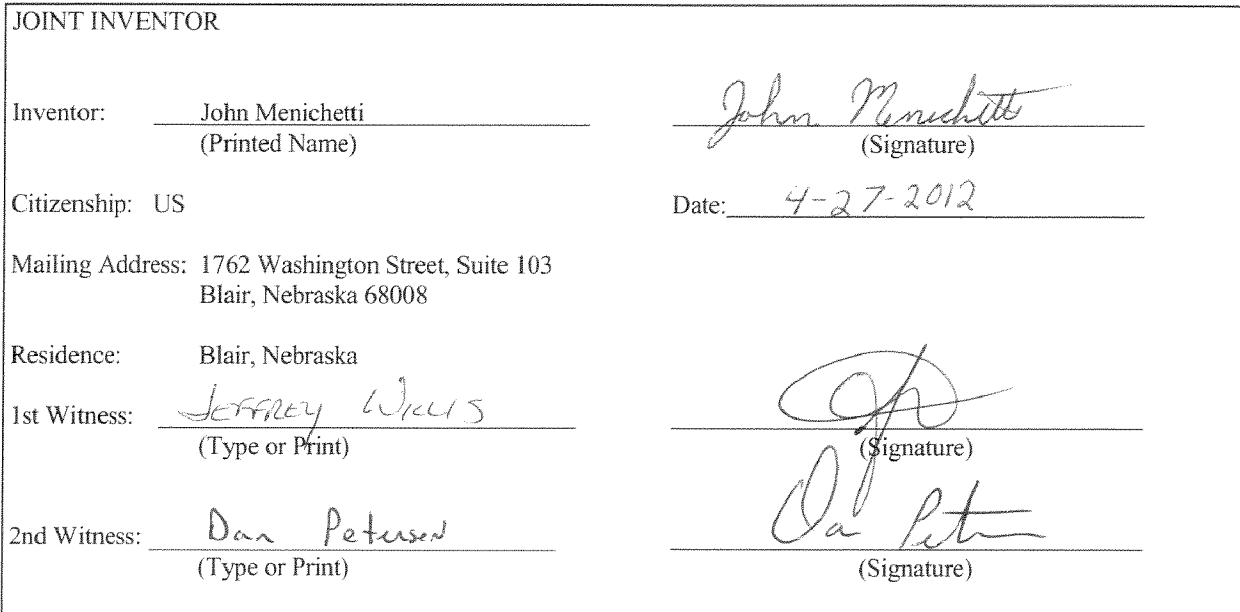 JOINT INVENTOR
Inventor: John Menichetti John Menichetti
(Printed Name) (Signature)
Citizenship: US Date: 4-27-2012
Mailing Address: 1762 Washington Street, Suite 103
Blair, Nebraska 68008
Residence: Blair, Nebraska
1st Witness: JEFFREY WILLIS
(Type or Print) (Signature)
2nd Witness: Dan Petersen Dan Peter
(Type or Print) (Signature)